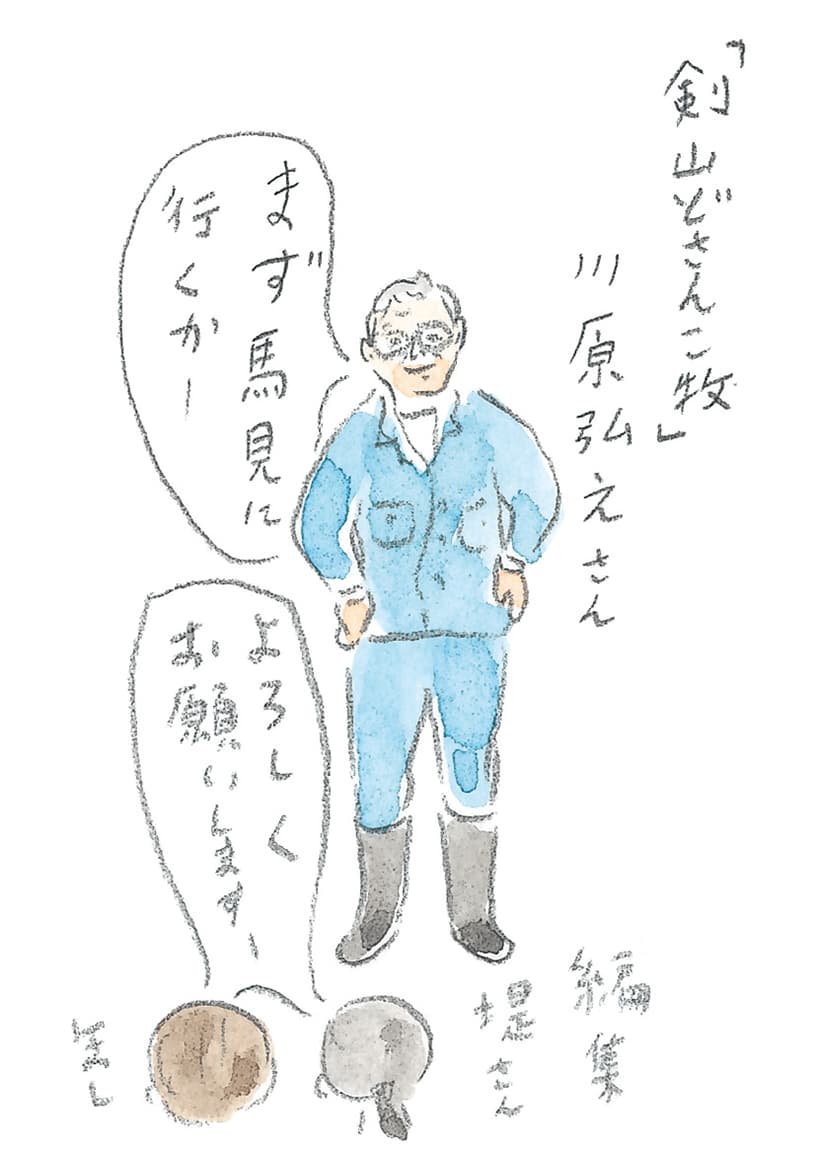 「剣山どさんこ牧」
川原弘えさん
まず馬見に
行くかー
よろしく
お願いします
編集
堤さん